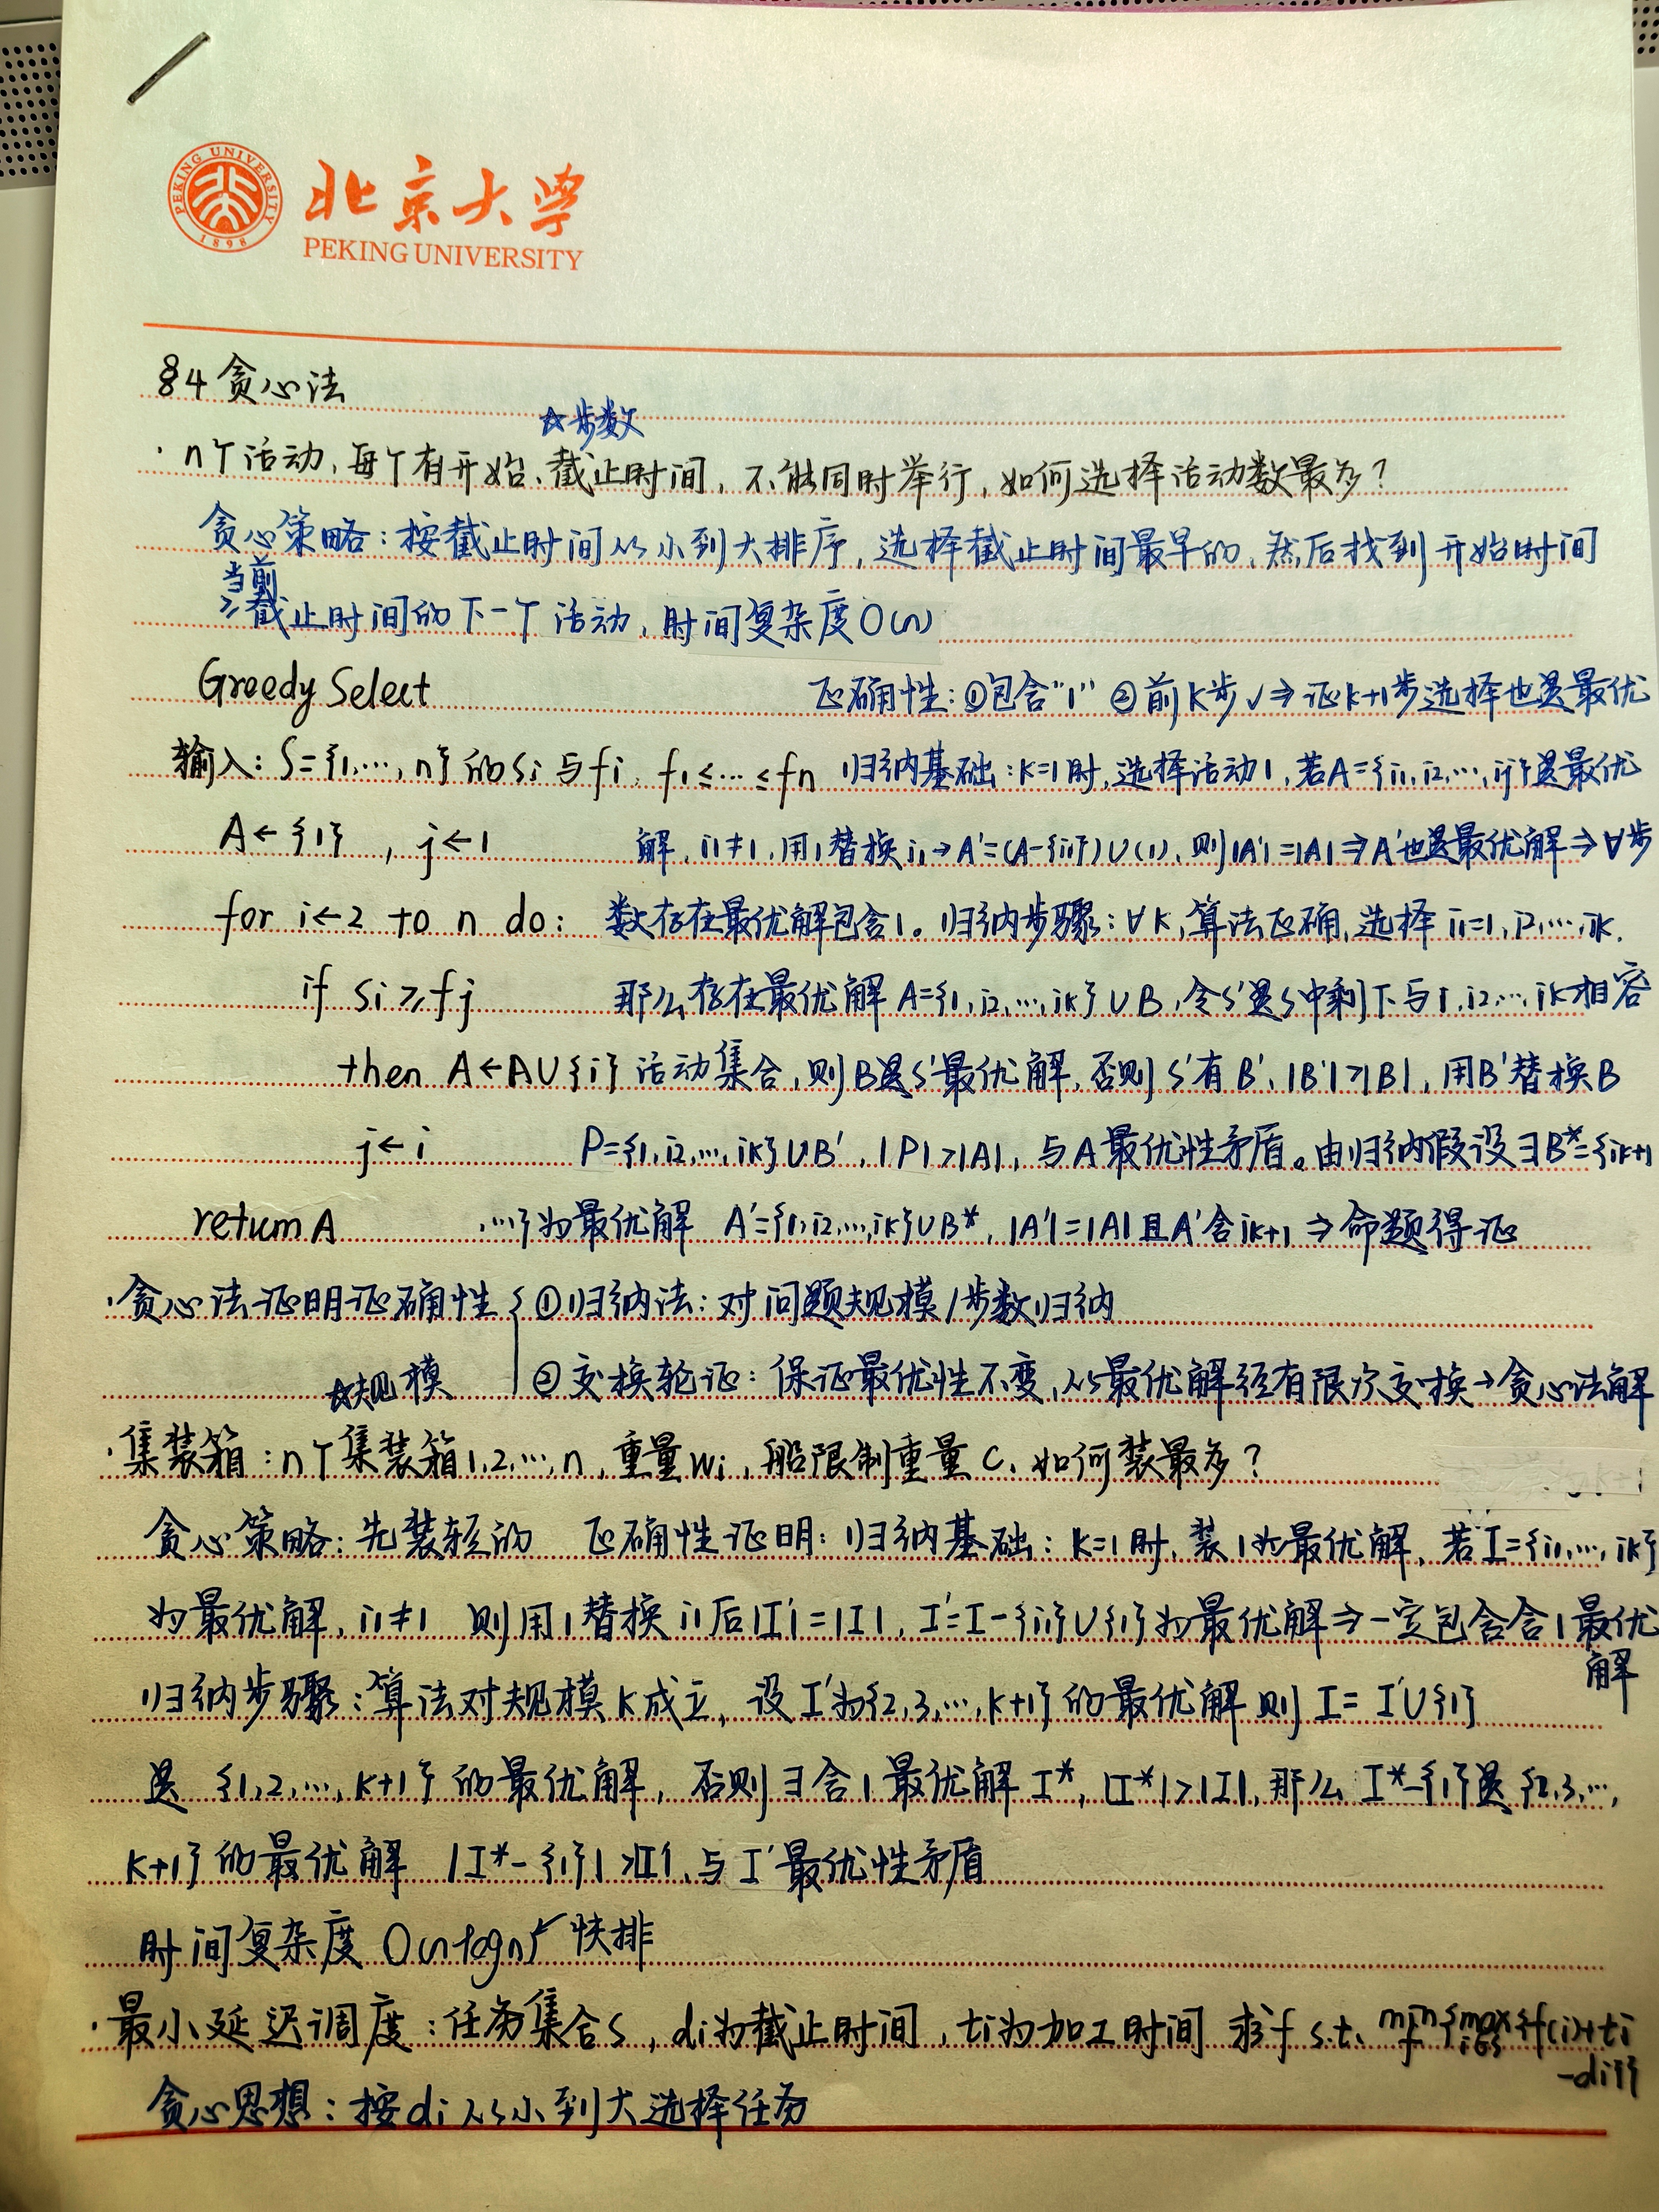 PEKING UNIVERSITY
1898
北京大学
PEKING UNIVERSITY
§4 贪心法
☆步数
· n个活动, 每个有开始、截止时间, 不能同时举行, 如何选择活动数最多?
贪心策略: 按截止时间从小到大排序, 选择截止时间最早的, 然后找到开始时间
当前
≥截止时间的下一个活动, 时间复杂度O(n)
Greedy Select 正确性: ①包含"1" ②前k步√⇒证k+1步选择也是最优
输入: S={1,…,n}的si与fi, f1≤…≤fn 归纳基础: k=1时, 选择活动1, 若A={i1,i2,…,ij}是最优
A←{1}, j←1 解, i1≠1, 用1替换i1→A'=(A-{i1})∪(1), 则|A'|=|A|⇒A'也是最优解⇒∀步
for i←2 to n do: 数存在最优解包含1。归纳步骤: ∀k, 算法正确, 选择i1=1,i2,…,ik.
if si≥fj 那么存在最优解A={1,i2,…,ik}∪B, 令S'是S中剩下与1,i2,…,ik相容
then A←A∪{i} 活动集合, 则B是S'最优解, 否则S'有B', |B'|>|B|, 用B'替换B
j←i P={1,i2,…,ik}∪B', |P|>|A|, 与A最优性矛盾。由归纳假设∃B*={ik+1
return A ,…}为最优解 A'={1,i2,…,ik}∪B*, |A'|=|A|且A'含ik+1⇒命题得证
·贪心法证明证确性{①归纳法: 对问题规模/步数归纳
②交换轮证: 保证最优性不变, 从最优解经有限次交换→贪心法解
☆规模
·集装箱: n个集装箱1,2,…,n, 重量wi, 船限制重量C, 如何装最多?
贪心策略: 先装轻的 正确性证明: 归纳基础: k=1时, 装1为最优解, 若I={i1,…,ik}
为最优解, i1≠1 则用1替换i1后|I'|=|I|, I'=I-{i1}∪{1}为最优解⇒一定包含含1最优
解
归纳步骤: 算法对规模k成立, 设I'为{2,3,…,k+1}的最优解则I=I'∪{1}
是{1,2,…,k+1}的最优解, 否则∃含1最优解I*, |I*|>|I|, 那么I*-{1}是{2,3,…,
k+1}的最优解 |I*-{1}|>|I'|, 与I'最优性矛盾
时间复杂度O(nlogn)↙快排
·最小延迟调度: 任务集合S, di为截止时间, ti为加工时间 求f s.t. min f {max i∈S {f(i)+ti
-di}}
贪心思想: 按di从小到大选择任务